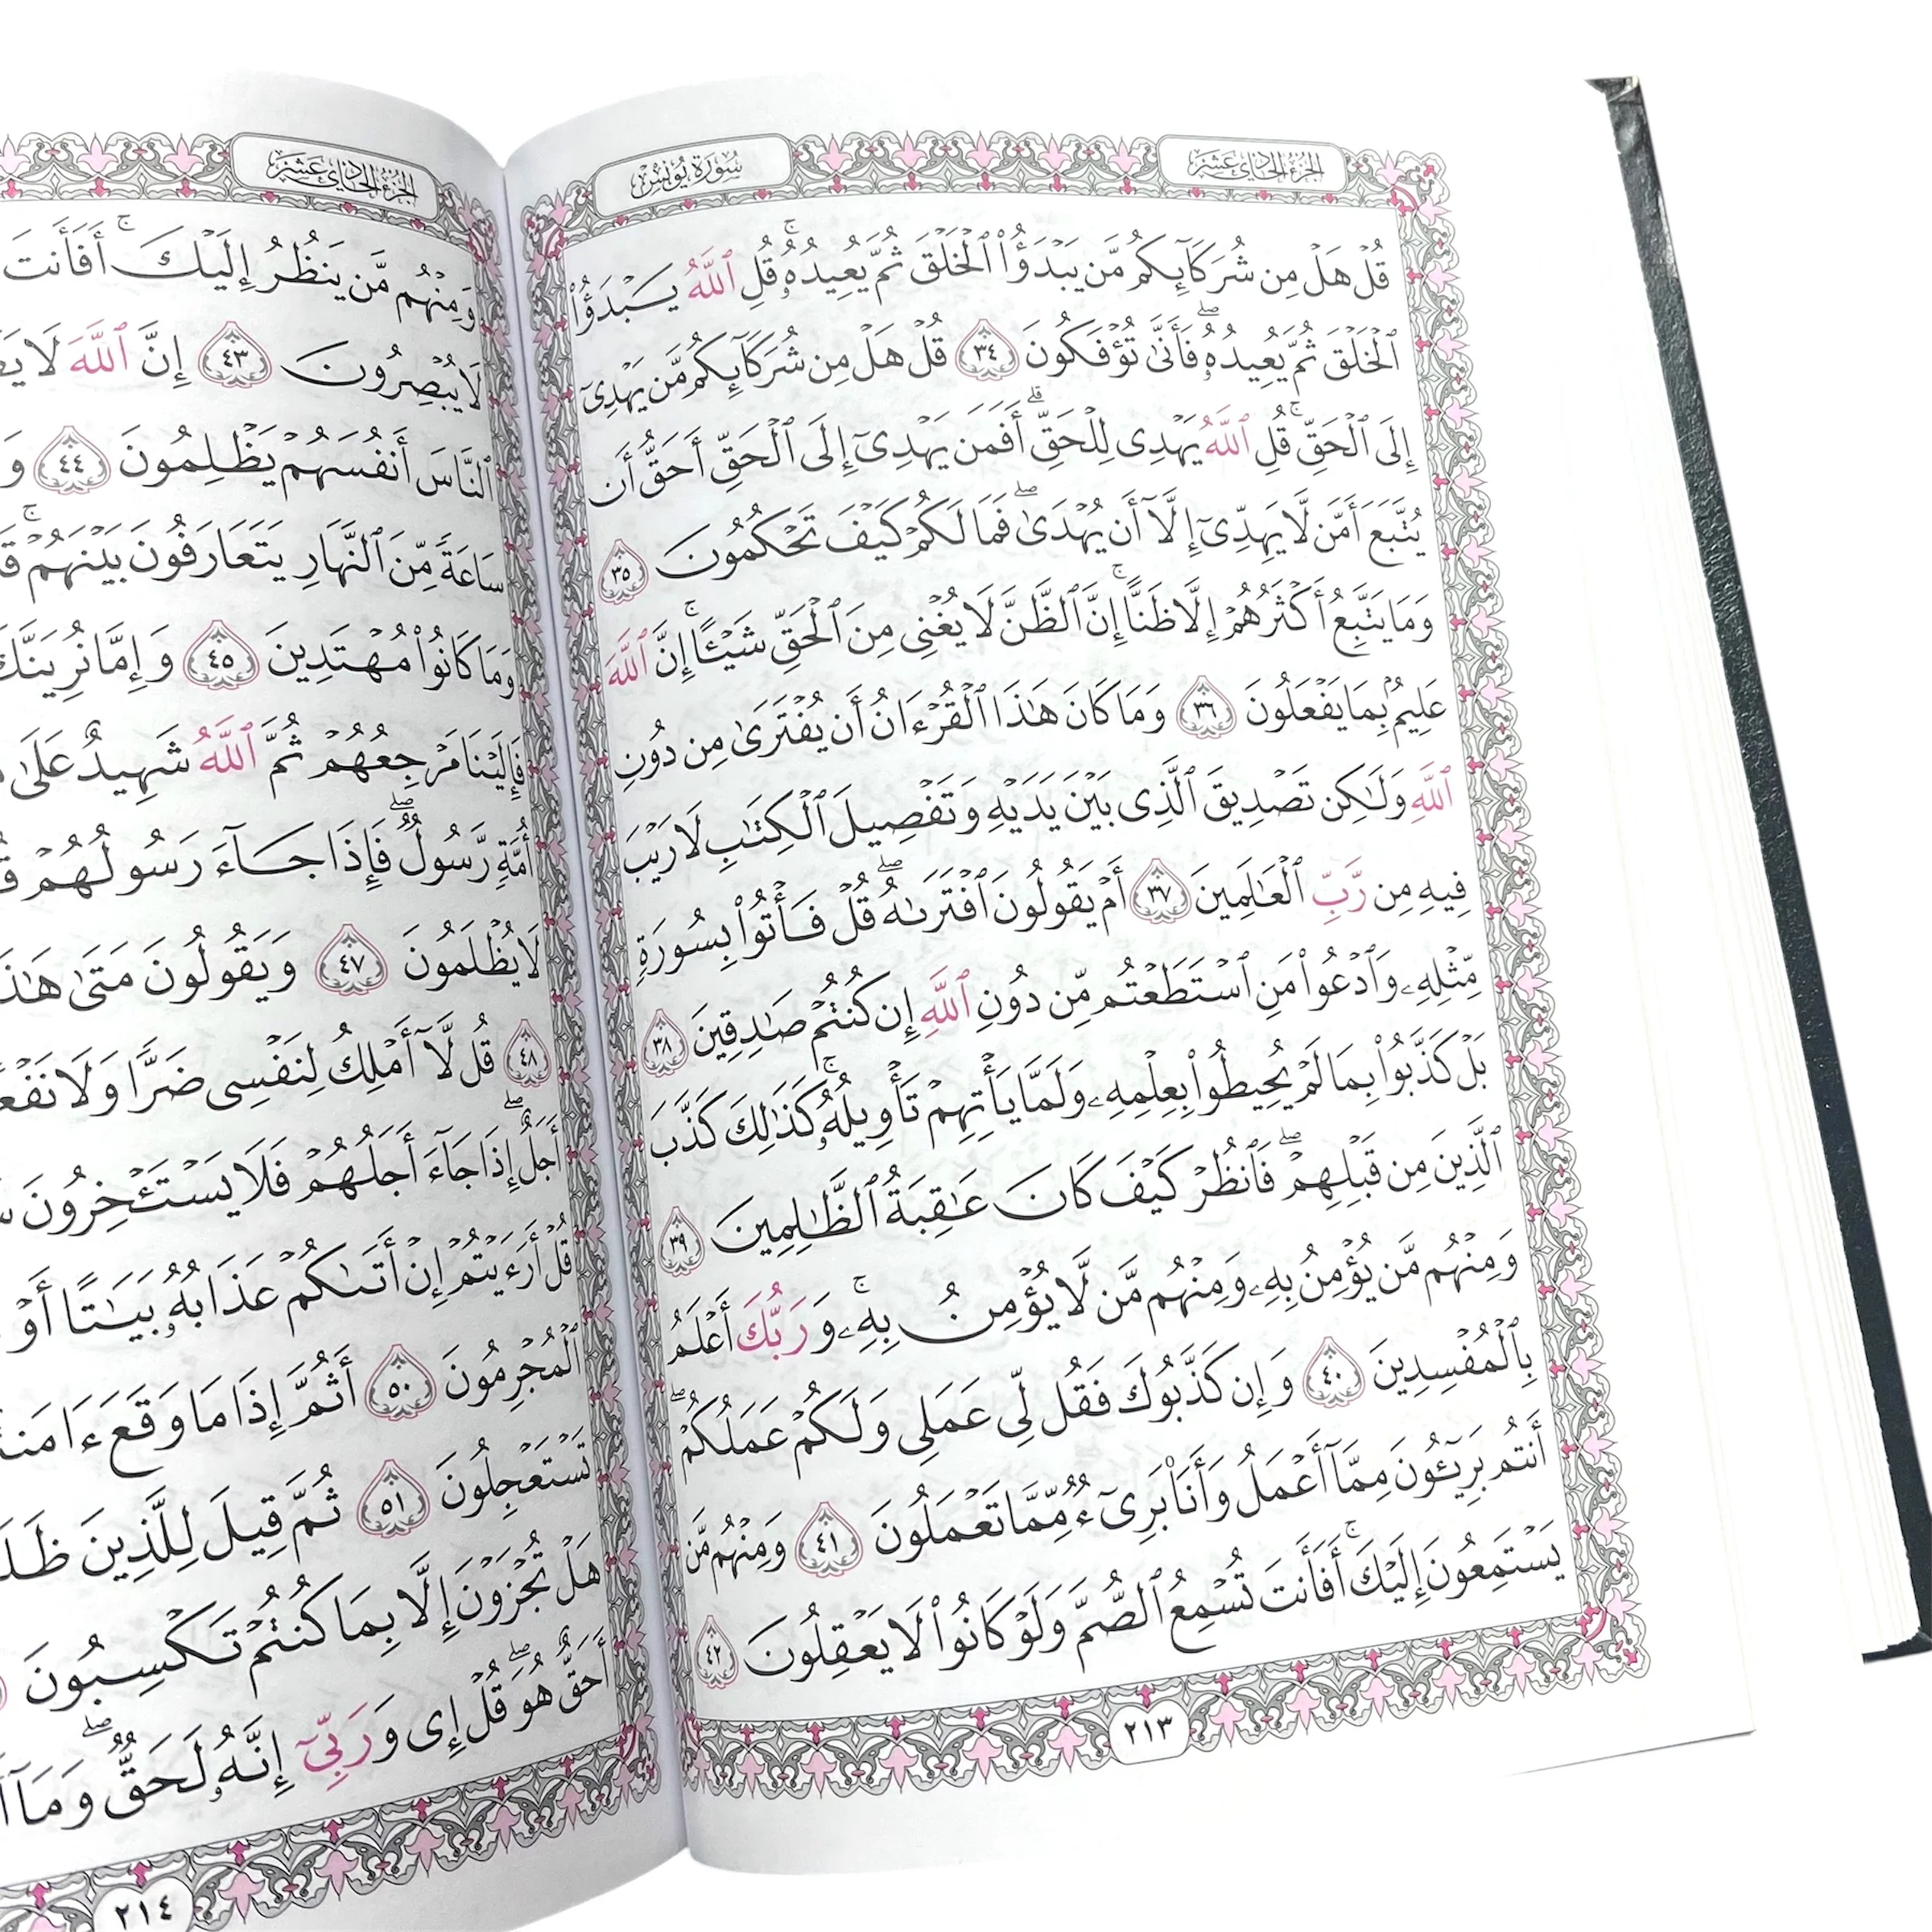 الجزء الحادي عشر
سورة يونس
قُلْ هَلْ مِن شُرَكَآئِكُم مَّن يَبْدَؤُا۟ ٱلْخَلْقَ ثُمَّ يُعِيدُهُۥ ۚ قُلِ ٱللَّهُ يَبْدَؤُا۟
ٱلْخَلْقَ ثُمَّ يُعِيدُهُۥ ۖ فَأَنَّىٰ تُؤْفَكُونَ ٣٤ قُلْ هَلْ مِن شُرَكَآئِكُم مَّن يَهْدِىٓ
إِلَى ٱلْحَقِّ ۚ قُلِ ٱللَّهُ يَهْدِى لِلْحَقِّ ۗ أَفَمَن يَهْدِىٓ إِلَى ٱلْحَقِّ أَحَقُّ أَن
يُتَّبَعَ أَمَّن لَّا يَهِدِّىٓ إِلَّآ أَن يُهْدَىٰ ۖ فَمَا لَكُمْ كَيْفَ تَحْكُمُونَ ٣٥
وَمَا يَتَّبِعُ أَكْثَرُهُمْ إِلَّا ظَنًّا ۚ إِنَّ ٱلظَّنَّ لَا يُغْنِى مِنَ ٱلْحَقِّ شَيْـًٔا ۚ إِنَّ ٱللَّهَ
عَلِيمٌۢ بِمَا يَفْعَلُونَ ٣٦ وَمَا كَانَ هَـٰذَا ٱلْقُرْءَانُ أَن يُفْتَرَىٰ مِن دُونِ
ٱللَّهِ وَلَـٰكِن تَصْدِيقَ ٱلَّذِى بَيْنَ يَدَيْهِ وَتَفْصِيلَ ٱلْكِتَـٰبِ لَا رَيْبَ
فِيهِ مِن رَّبِّ ٱلْعَـٰلَمِينَ ٣٧ أَمْ يَقُولُونَ ٱفْتَرَىٰهُ ۖ قُلْ فَأْتُوا۟ بِسُورَةٍ
مِّثْلِهِۦ وَٱدْعُوا۟ مَنِ ٱسْتَطَعْتُم مِّن دُونِ ٱللَّهِ إِن كُنتُمْ صَـٰدِقِينَ ٣٨
بَلْ كَذَّبُوا۟ بِمَا لَمْ يُحِيطُوا۟ بِعِلْمِهِۦ وَلَمَّا يَأْتِهِمْ تَأْوِيلُهُۥ ۚ كَذَٰلِكَ كَذَّبَ
ٱلَّذِينَ مِن قَبْلِهِمْ ۖ فَٱنظُرْ كَيْفَ كَانَ عَـٰقِبَةُ ٱلظَّـٰلِمِينَ ٣٩
وَمِنْهُم مَّن يُؤْمِنُ بِهِۦ وَمِنْهُم مَّن لَّا يُؤْمِنُ بِهِۦ ۚ وَرَبُّكَ أَعْلَمُ
بِٱلْمُفْسِدِينَ ٤٠ وَإِن كَذَّبُوكَ فَقُل لِّى عَمَلِى وَلَكُمْ عَمَلُكُمْ ۖ
أَنتُم بَرِيٓـُٔونَ مِمَّآ أَعْمَلُ وَأَنَا۠ بَرِىٓءٌ مِّمَّا تَعْمَلُونَ ٤١ وَمِنْهُم مَّن
يَسْتَمِعُونَ إِلَيْكَ ۚ أَفَأَنتَ تُسْمِعُ ٱلصُّمَّ وَلَوْ كَانُوا۟ لَا يَعْقِلُونَ ٤٢
٢١٣
الجزء الحادي عشر
وَمِنْهُم مَّن يَنظُرُ إِلَيْكَ ۚ أَفَأَنتَ
لَا يُبْصِرُونَ ٤٣ إِنَّ ٱللَّهَ لَا
ٱلنَّاسَ أَنفُسَهُمْ يَظْلِمُونَ ٤٤
سَاعَةً مِّنَ ٱلنَّهَارِ يَتَعَارَفُونَ بَيْنَهُمْ ۚ
وَمَا كَانُوا۟ مُهْتَدِينَ ٤٥ وَإِمَّا نُرِيَنَّكَ
فَإِلَيْنَا مَرْجِعُهُمْ ثُمَّ ٱللَّهُ شَهِيدٌ عَلَىٰ
أُمَّةٍ رَّسُولٌ ۖ فَإِذَا جَآءَ رَسُولُهُمْ
لَا يُظْلَمُونَ ٤٧ وَيَقُولُونَ مَتَىٰ هَـٰذَا
٤٨ قُل لَّآ أَمْلِكُ لِنَفْسِى ضَرًّا وَلَا نَفْعًا
أَجَلٌ ۚ إِذَا جَآءَ أَجَلُهُمْ فَلَا يَسْتَـْٔخِرُونَ
قُلْ أَرَءَيْتُمْ إِنْ أَتَىٰكُمْ عَذَابُهُۥ بَيَـٰتًا أَوْ
ٱلْمُجْرِمُونَ ٥٠ أَثُمَّ إِذَا مَا وَقَعَ ءَامَنتُم
تَسْتَعْجِلُونَ ٥١ ثُمَّ قِيلَ لِلَّذِينَ
هَلْ تُجْزَوْنَ إِلَّا بِمَا كُنتُمْ تَكْسِبُونَ
أَحَقٌّ هُوَ ۖ قُلْ إِى وَرَبِّىٓ إِنَّهُۥ لَحَقٌّ ۖ وَمَآ
٢١٤